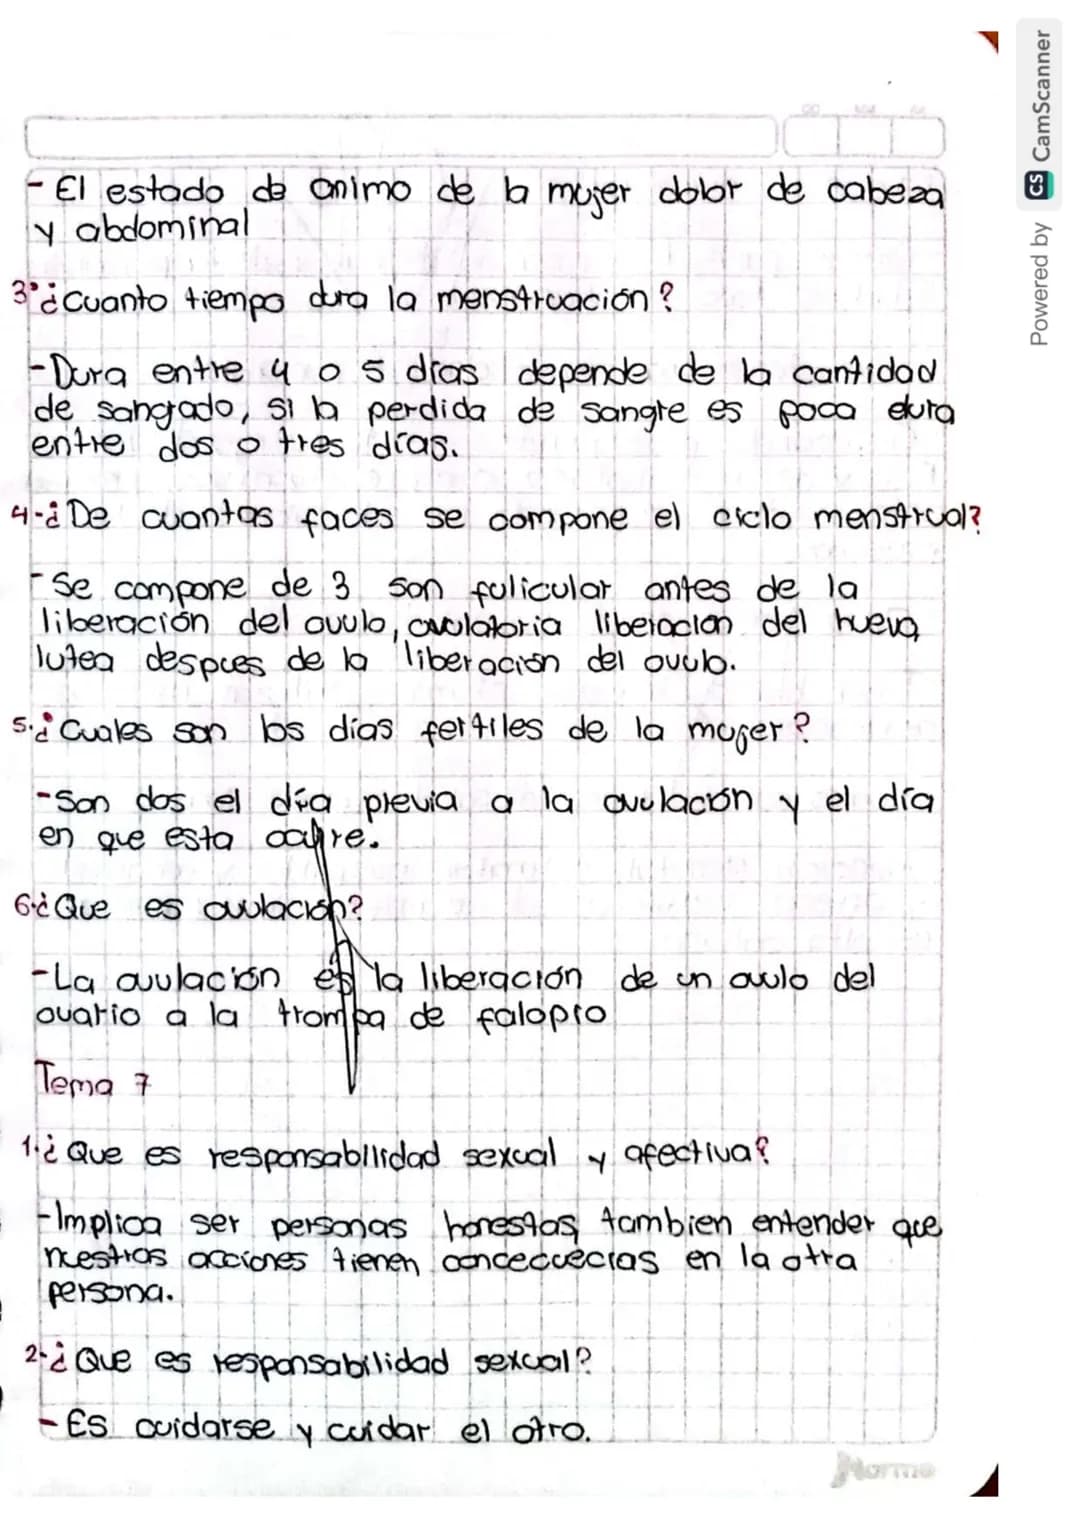 - El estado de animo de la mujer dolor de cabeza
y abdominal
3°¿Cuanto tiempo dura la menstruación?
- Dura entre 4 o 5 dias depende de la cantidad
de sangrado, si la perdida de sangre es poca dura
entre dos o tres días.
4-¿De cuantas faces se compone el ciclo menstrual?
- Se compone de 3 son fulicular antes de la
liberación del ovulo, ovulatoria liberacion del huevo,
lutea despues de la liberación del ovulo.
5.¿Cuales son los días fertiles de la mujer?
- Son dos el día previa a la ovulación y el día
en que esta ocurre.
6.¿Que es ovulación?
- La ovulación es la liberación de un ovulo del
ovario a la trompa de falopio
Tema 7
1.¿Que es responsabilidad sexual y afectiva?
- Implica ser personas honestas, tambien entender que
nuestras acciones tienen concecuecias en la otra
persona.
2-¿Que es responsabilidad sexual?
- Es cuidarse y cuidar el otro.
Norma
Powered by CS CamScanner